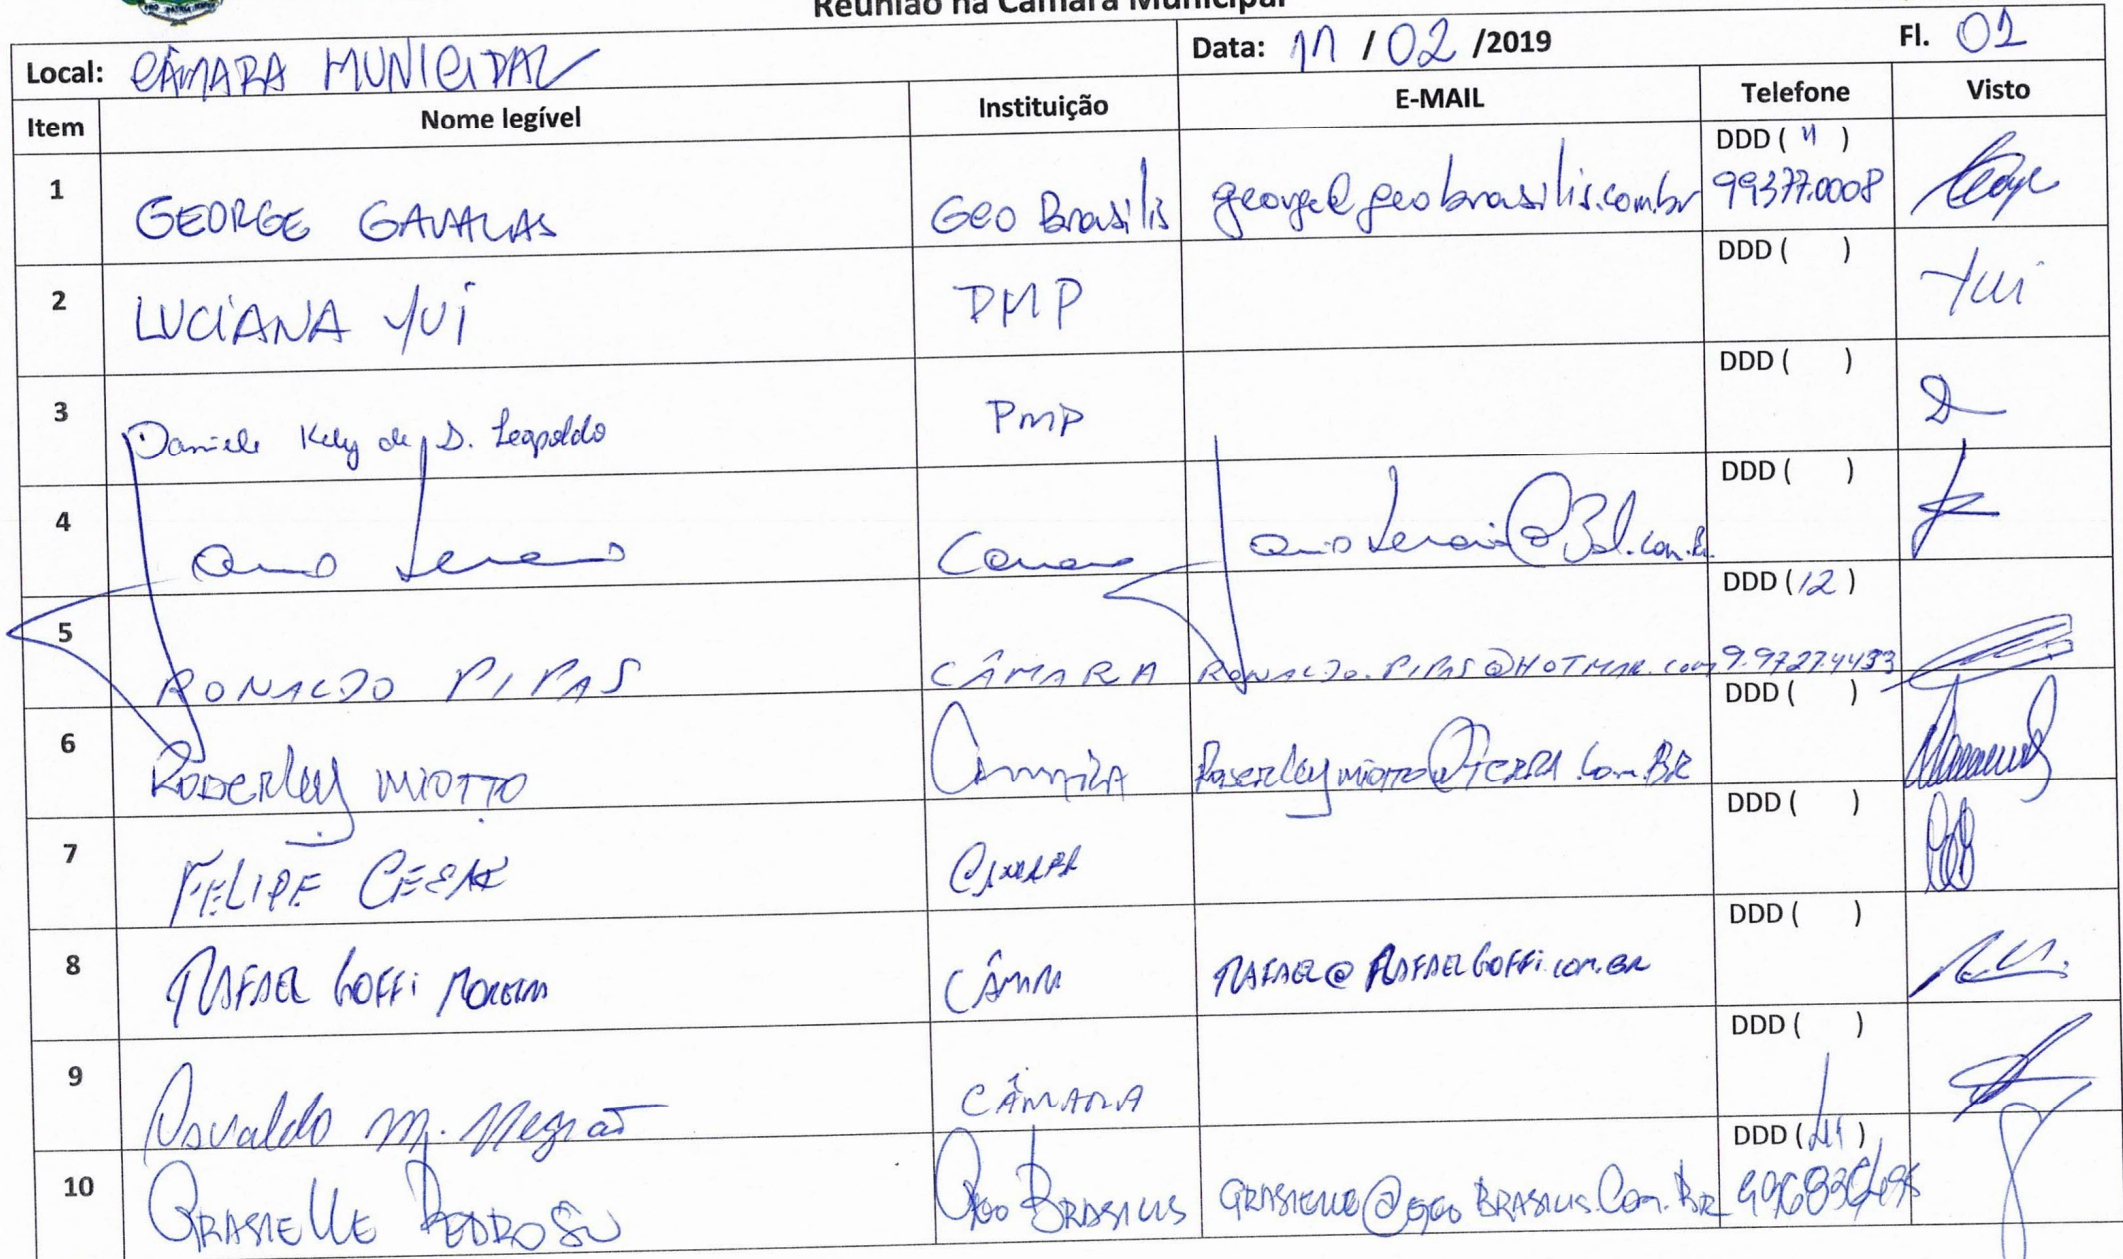 Reunião na Câmara Municipal
Local: CÂMARA MUNICIPAL Data: 11 / 02 /2019 Fl. 01
Item Nome legível Instituição E-MAIL Telefone Visto
1 GEORGE GAVALAS Geo Brasilis george@geobrasilis.com.br DDD ( 11 ) 99377.0008
2 LUCIANA YUI PMP DDD ( ) Yui
3 Daniele Kely de S. Leopoldo PMP DDD ( )
4 DDD ( )
5 RONALDO PIPAS CÂMARA RONALDO.PIPAS@HOTMAIL.com DDD (12)
6 RODERLEY MIOTTO DDD ( )
7 FELIPE CESAR CÂMARA DDD ( )
8 RAFAEL GOFFI MOREIRA RAFAEL@RAFAELGOFFI.COM.BR DDD ( )
9 Osvaldo M. Negrão CÂMARA DDD ( )
10 GRASIELLE PEDROSO Geo BRASILIS GRASIELLE@GEOBRASILIS.Com.BR DDD (11)